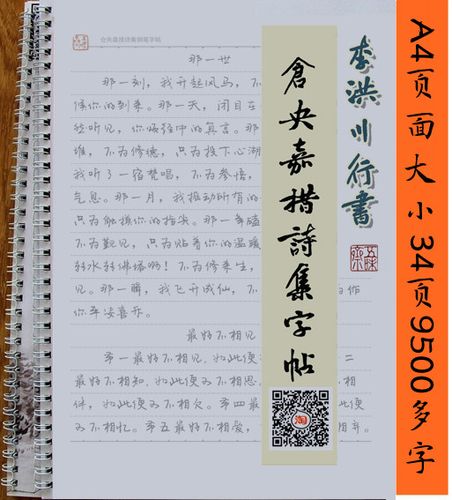 仓央嘉措诗集钢笔字帖
那一世
那一刻，我升起风马，不
候你的到来。那一天，闭目在
然听见，你诵经中的真言。那
堆，不为修德，只为投下心湖
我听了一宿梵唱，不为参悟，
气息。那一月，我摇动所有的
只为触摸你的指尖。那一年磕
不为觐见，只为贴着你的温暖
转水转佛塔啊！不为修来生，
见。那一瞬，我飞升成仙，不 为佑
你平安喜乐。
最好不相见
第一最好不相见，如此便 二
最好不相知，如此便可不相思 相
伴，如此便可不相欠。第四最
可不相忆。第五最好不相爱， 相弃。
倉央嘉措詩集字帖
李洪川行書
A4页面大小34页9500多字